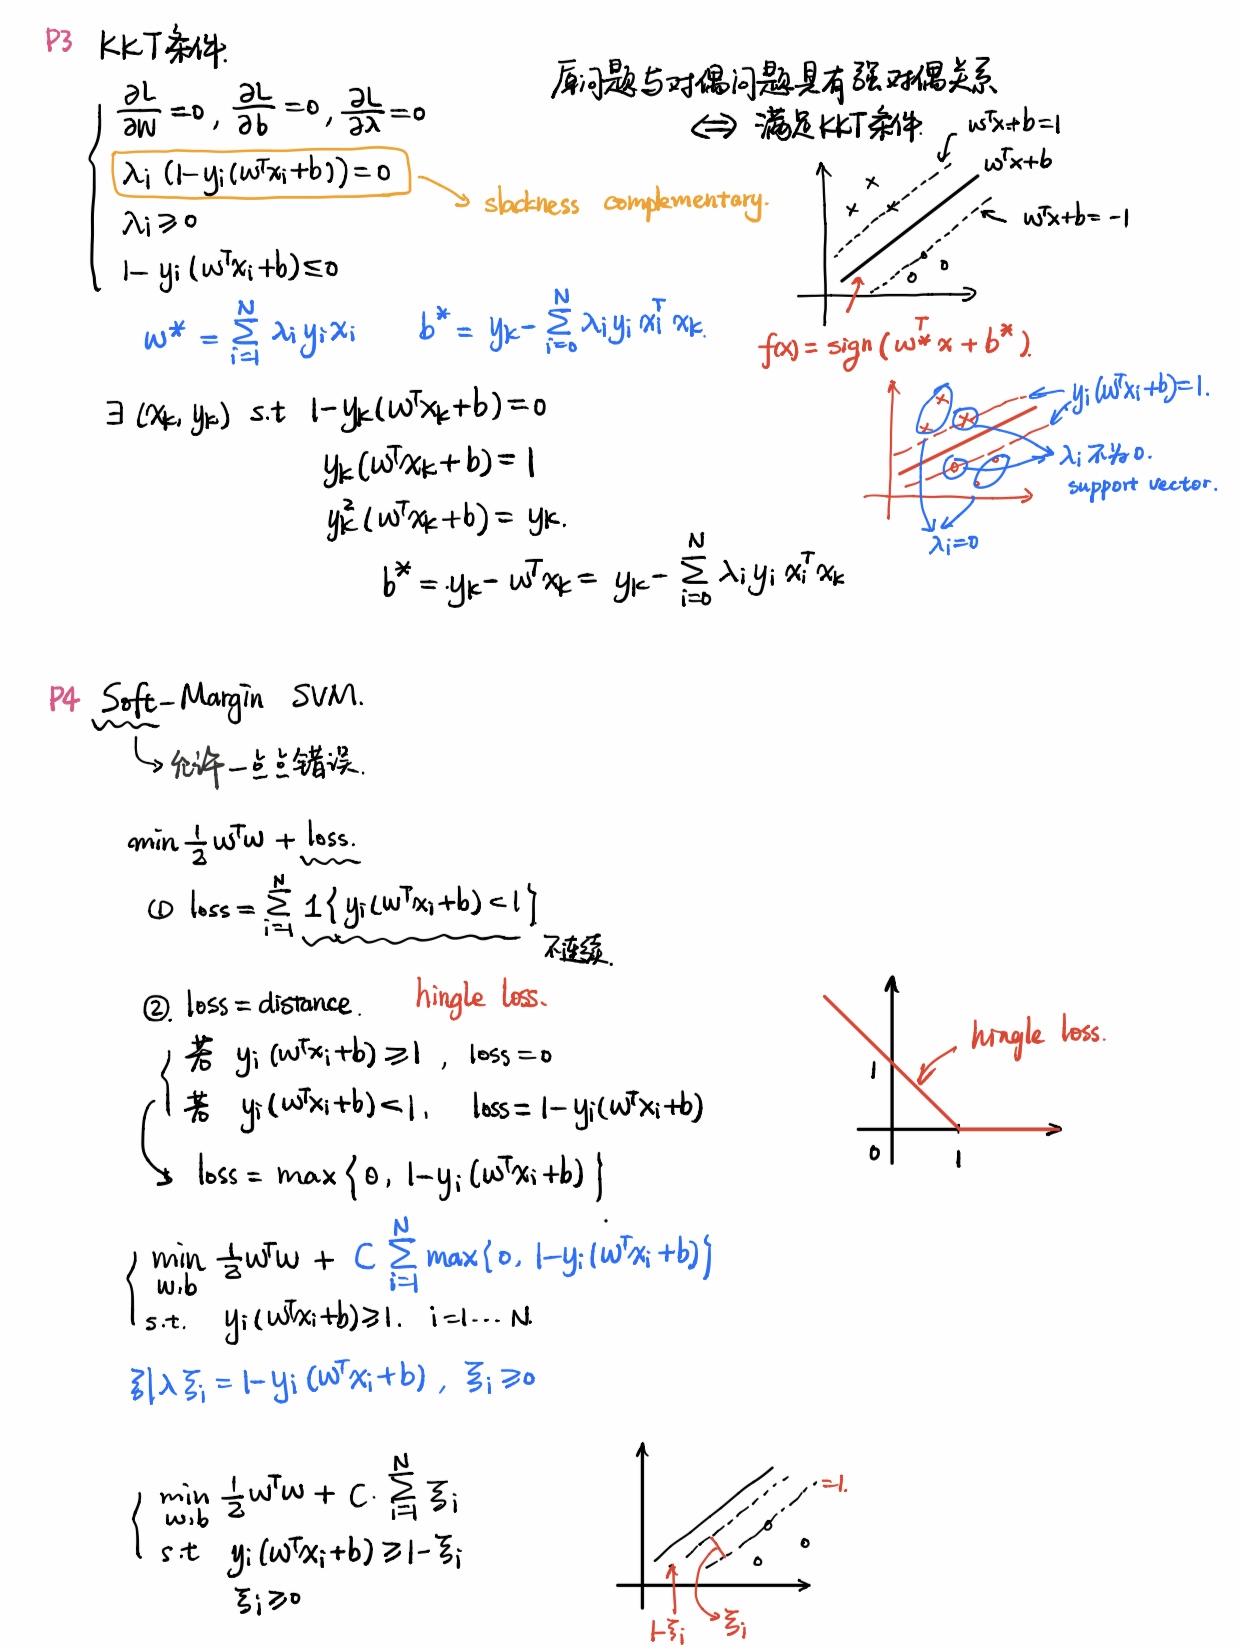 P3 KKT条件.
∂L/∂W = 0, ∂L/∂b = 0, ∂L/∂λ = 0
λi (1-yi(wᵀxi+b)) = 0
slackness complementary.
λi ≥ 0
1- yi(wᵀxi+b) ≤ 0
原问题与对偶问题具有强对偶关系
⟺ 满足KKT条件.
wᵀx+b=1
wᵀx+b
wᵀx+b = -1
w* = ∑_{i=1}^{N} λi yi xi
b* = yk - ∑_{i=0}^{N} λi yi xiᵀ xk.
f(x) = sign(w*ᵀ x + b*).
∃ (xk, yk) s.t 1-yk(wᵀxk+b) = 0
yk(wᵀxk+b) = 1
yk²(wᵀxk+b) = yk.
b* = yk - wᵀxk = yk - ∑_{i=0}^{N} λi yi xiᵀ xk
yi(wᵀxi+b)=1.
λi 不为0.
support vector.
λi=0
P4 Soft-Margin SVM.
允许一点点错误.
min ½ wᵀw + loss.
① loss = ∑_{i=1}^{N} 1{yi(wᵀxi+b) < 1}
不连续.
②. loss = distance. hingle loss.
若 yi(wᵀxi+b) ≥ 1, loss = 0
若 yi(wᵀxi+b) < 1, loss = 1-yi(wᵀxi+b)
loss = max{0, 1-yi(wᵀxi+b)}
hingle loss.
1
0
1
min ½ wᵀw + C ∑_{i=1}^{N} max{0, 1-yi(wᵀxi+b)}
w,b
s.t. yi(wᵀxi+b) ≥ 1. i=1⋯N.
引入 ξi = 1-yi(wᵀxi+b), ξi ≥ 0
min ½ wᵀw + C · ∑_{i=1}^{N} ξi
w,b
s.t yi(wᵀxi+b) ≥ 1-ξi
ξi ≥ 0
=1.
1-ξi
ξi